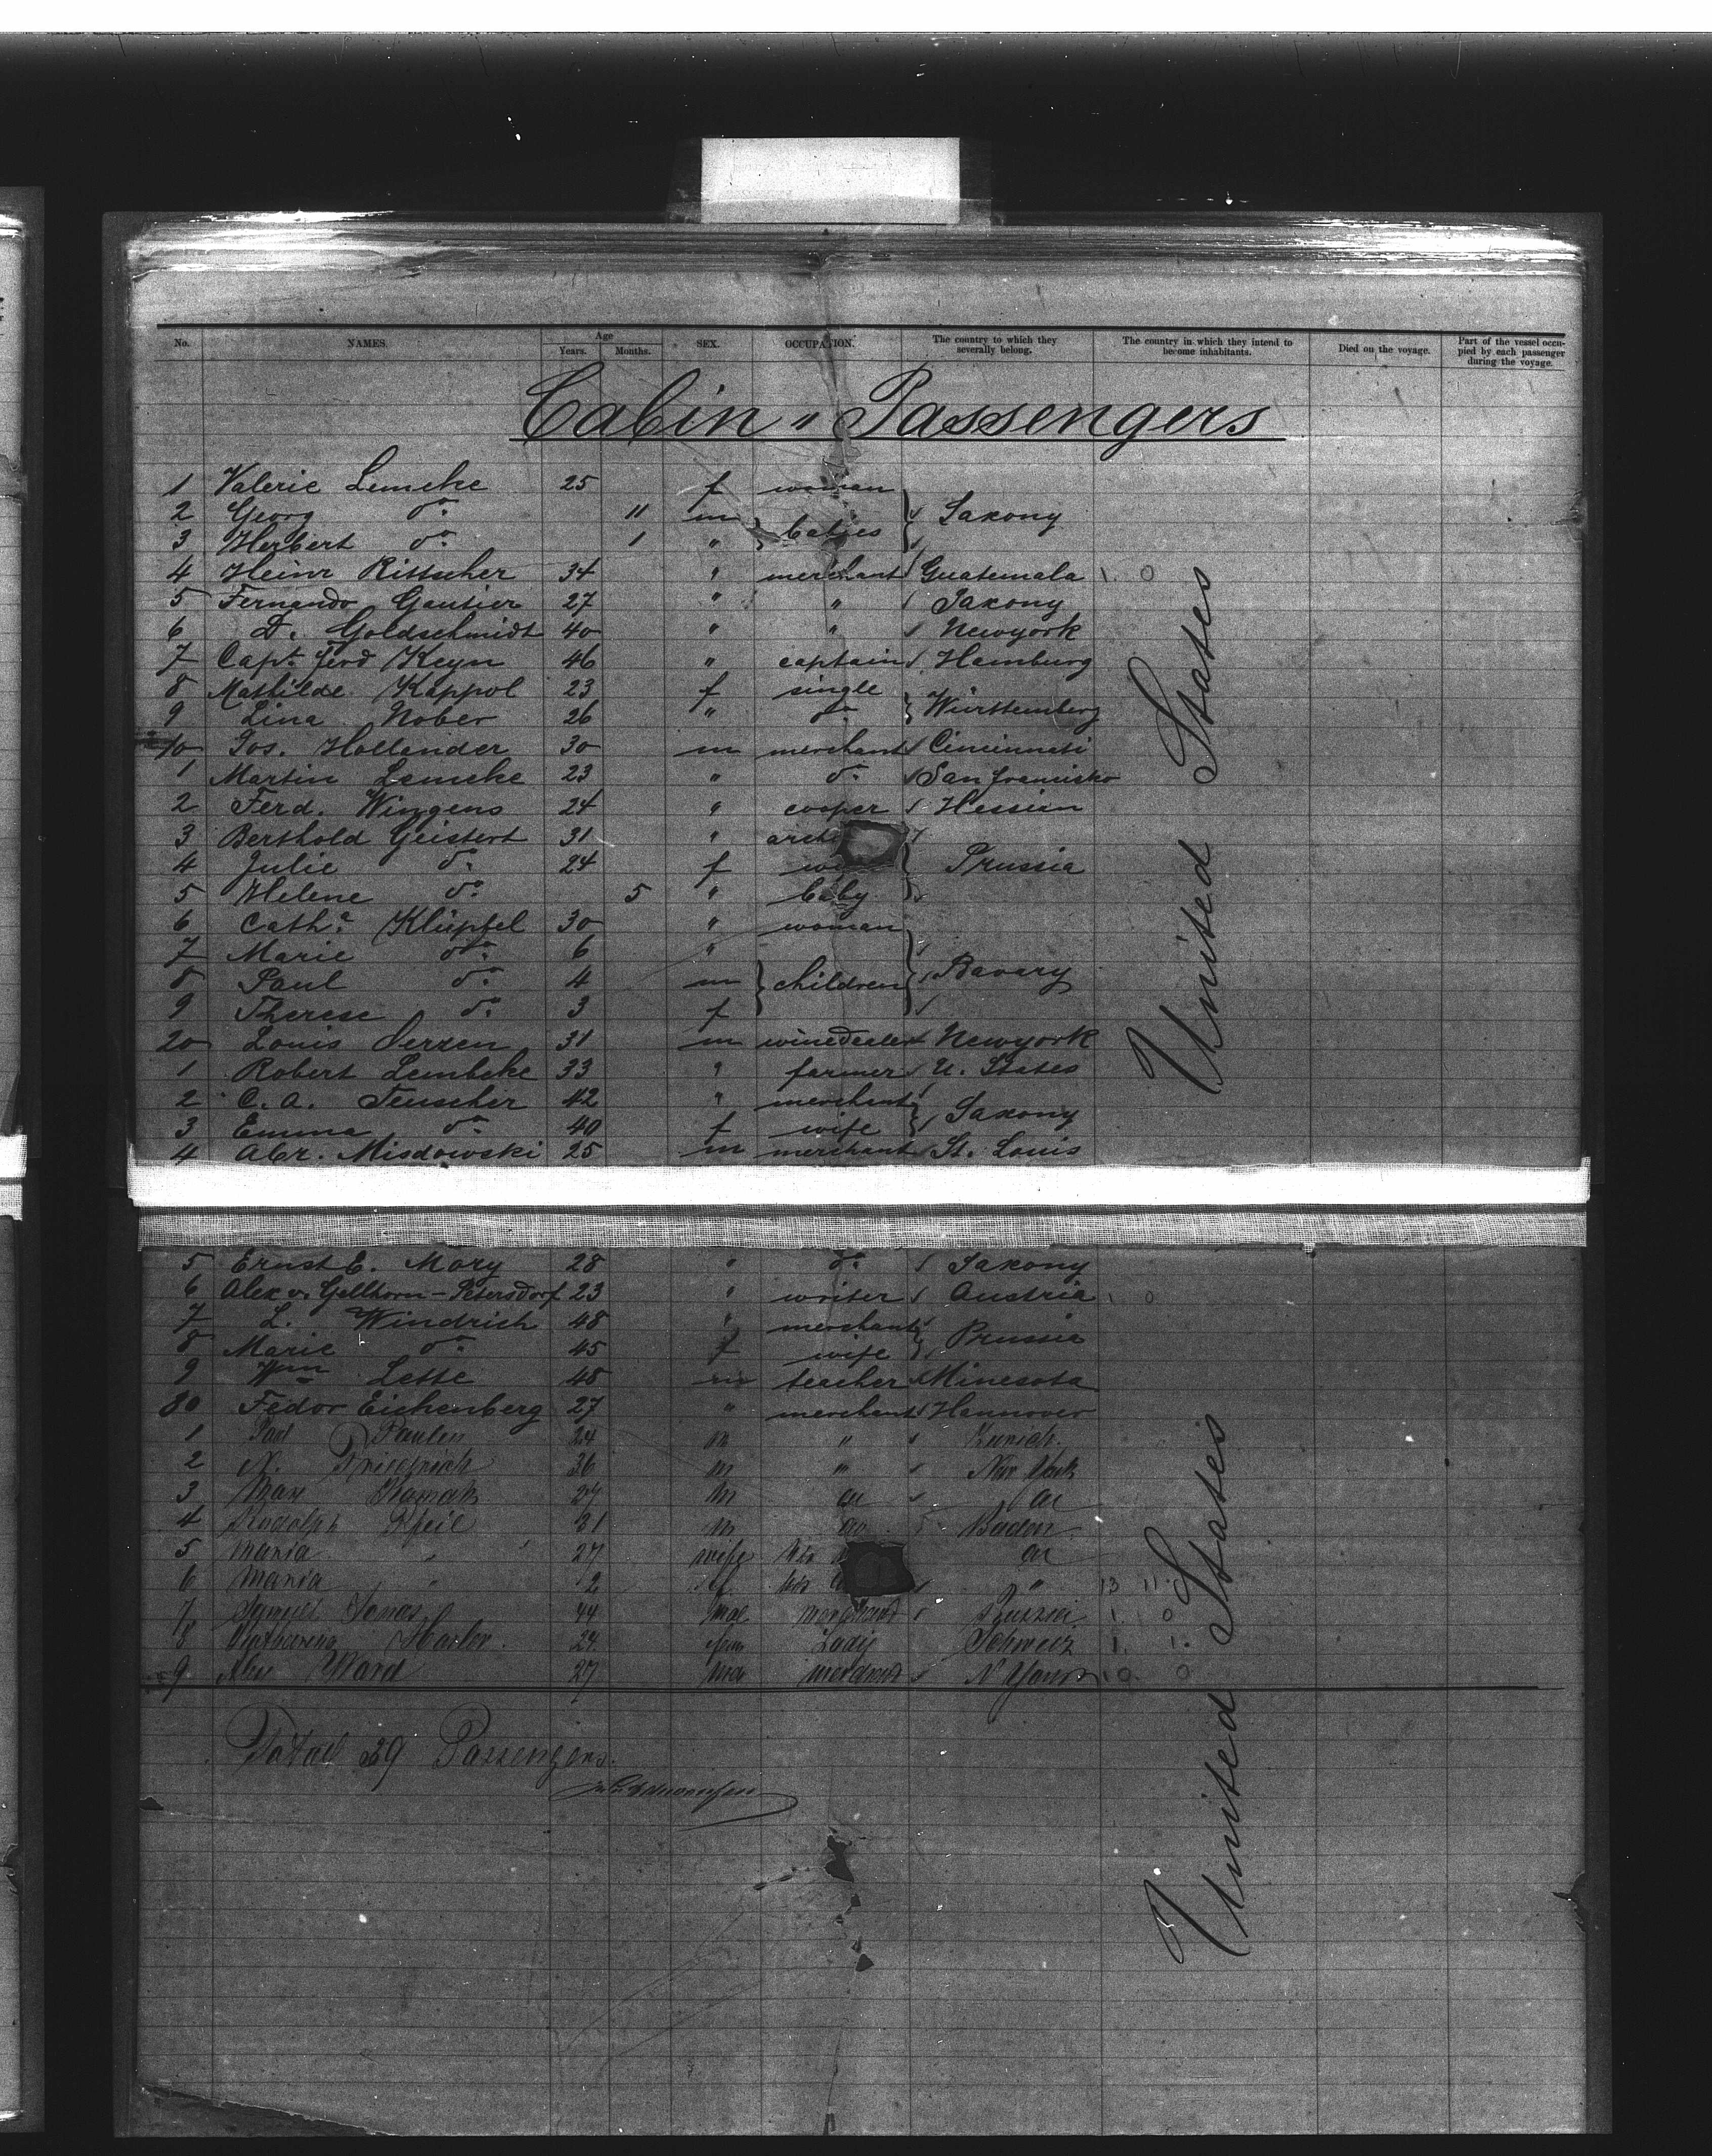 No. NAMES. Age Years. Months. SEX. OCCUPATION. The country to which they severally belong. The country in which they intend to become inhabitants. Died on the voyage. Part of the vessel occupied by each passenger during the voyage.
Cabin " Passengers
1 Valerie Lemcke 25 f woman
2 Georg do. 11 m babies Saxony
3 Herbert do. 1 "
4 Heinr Rittscher 34 " merchant Guatemala 1. 0
5 Fernando Gautier 27 " " Saxony
6 D. Goldschmidt 40 " " Newyork
7 Capt. Ferd Keyn 46 " captain Hamburg
8 Mathilde Kappol 23 f single Württemberg
9 Lina Nober 26 " do.
10 Jos. Hollander 30 m merchant Cincinnati
1 Martin Lemcke 23 " do. San Francisko
2 Ferd. Wingens 24 " cooper Hessian
3 Berthold Geistert 31 " arch
4 Julie do. 24 f Prussia
5 Helene do. 5 " baby
6 Catha. Klüpfel 30 " woman
7 Marie do. 6 "
8 Paul do. 4 m children Bavary
9 Therese do. 3 f
20 Louis Derzen 31 m winedealer Newyork
1 Robert Lembcke 33 " farmer U. States
2 C. A. Teuscher 42 " merchant Saxony
3 Emma do. 40 f wife
4 Abr. Misdowski 25 m merchant St. Louis
United States
5 Ernst E. Mory 28 " do. Saxony
6 Alex v. Gellhorn-Petersdorf 23 " writer Austria 1. 0
7 L. Windrich 48 " merchant Prussia
8 Marie do. 45 f wife
9 Wm Lette 48 m teacher Minesota
30 Fedor Eichenberg 27 " merchant Hannover
1 Paul Paulin 24 m " Zurich.
2 N. Friedrich 36 m " New York
3 Max 27 m do do
4 Rudolph Pfeil 31 m do Baden
5 Maria " 27 wife do
6 Maria " 2 "
7 Samuel Jonas 44 mal merchant Russia 1. 0
8 24 fem Lady Schweiz 1. 1.
9 Alex Ward 27 ma merchant N York
United States
Total 39 Passengers.